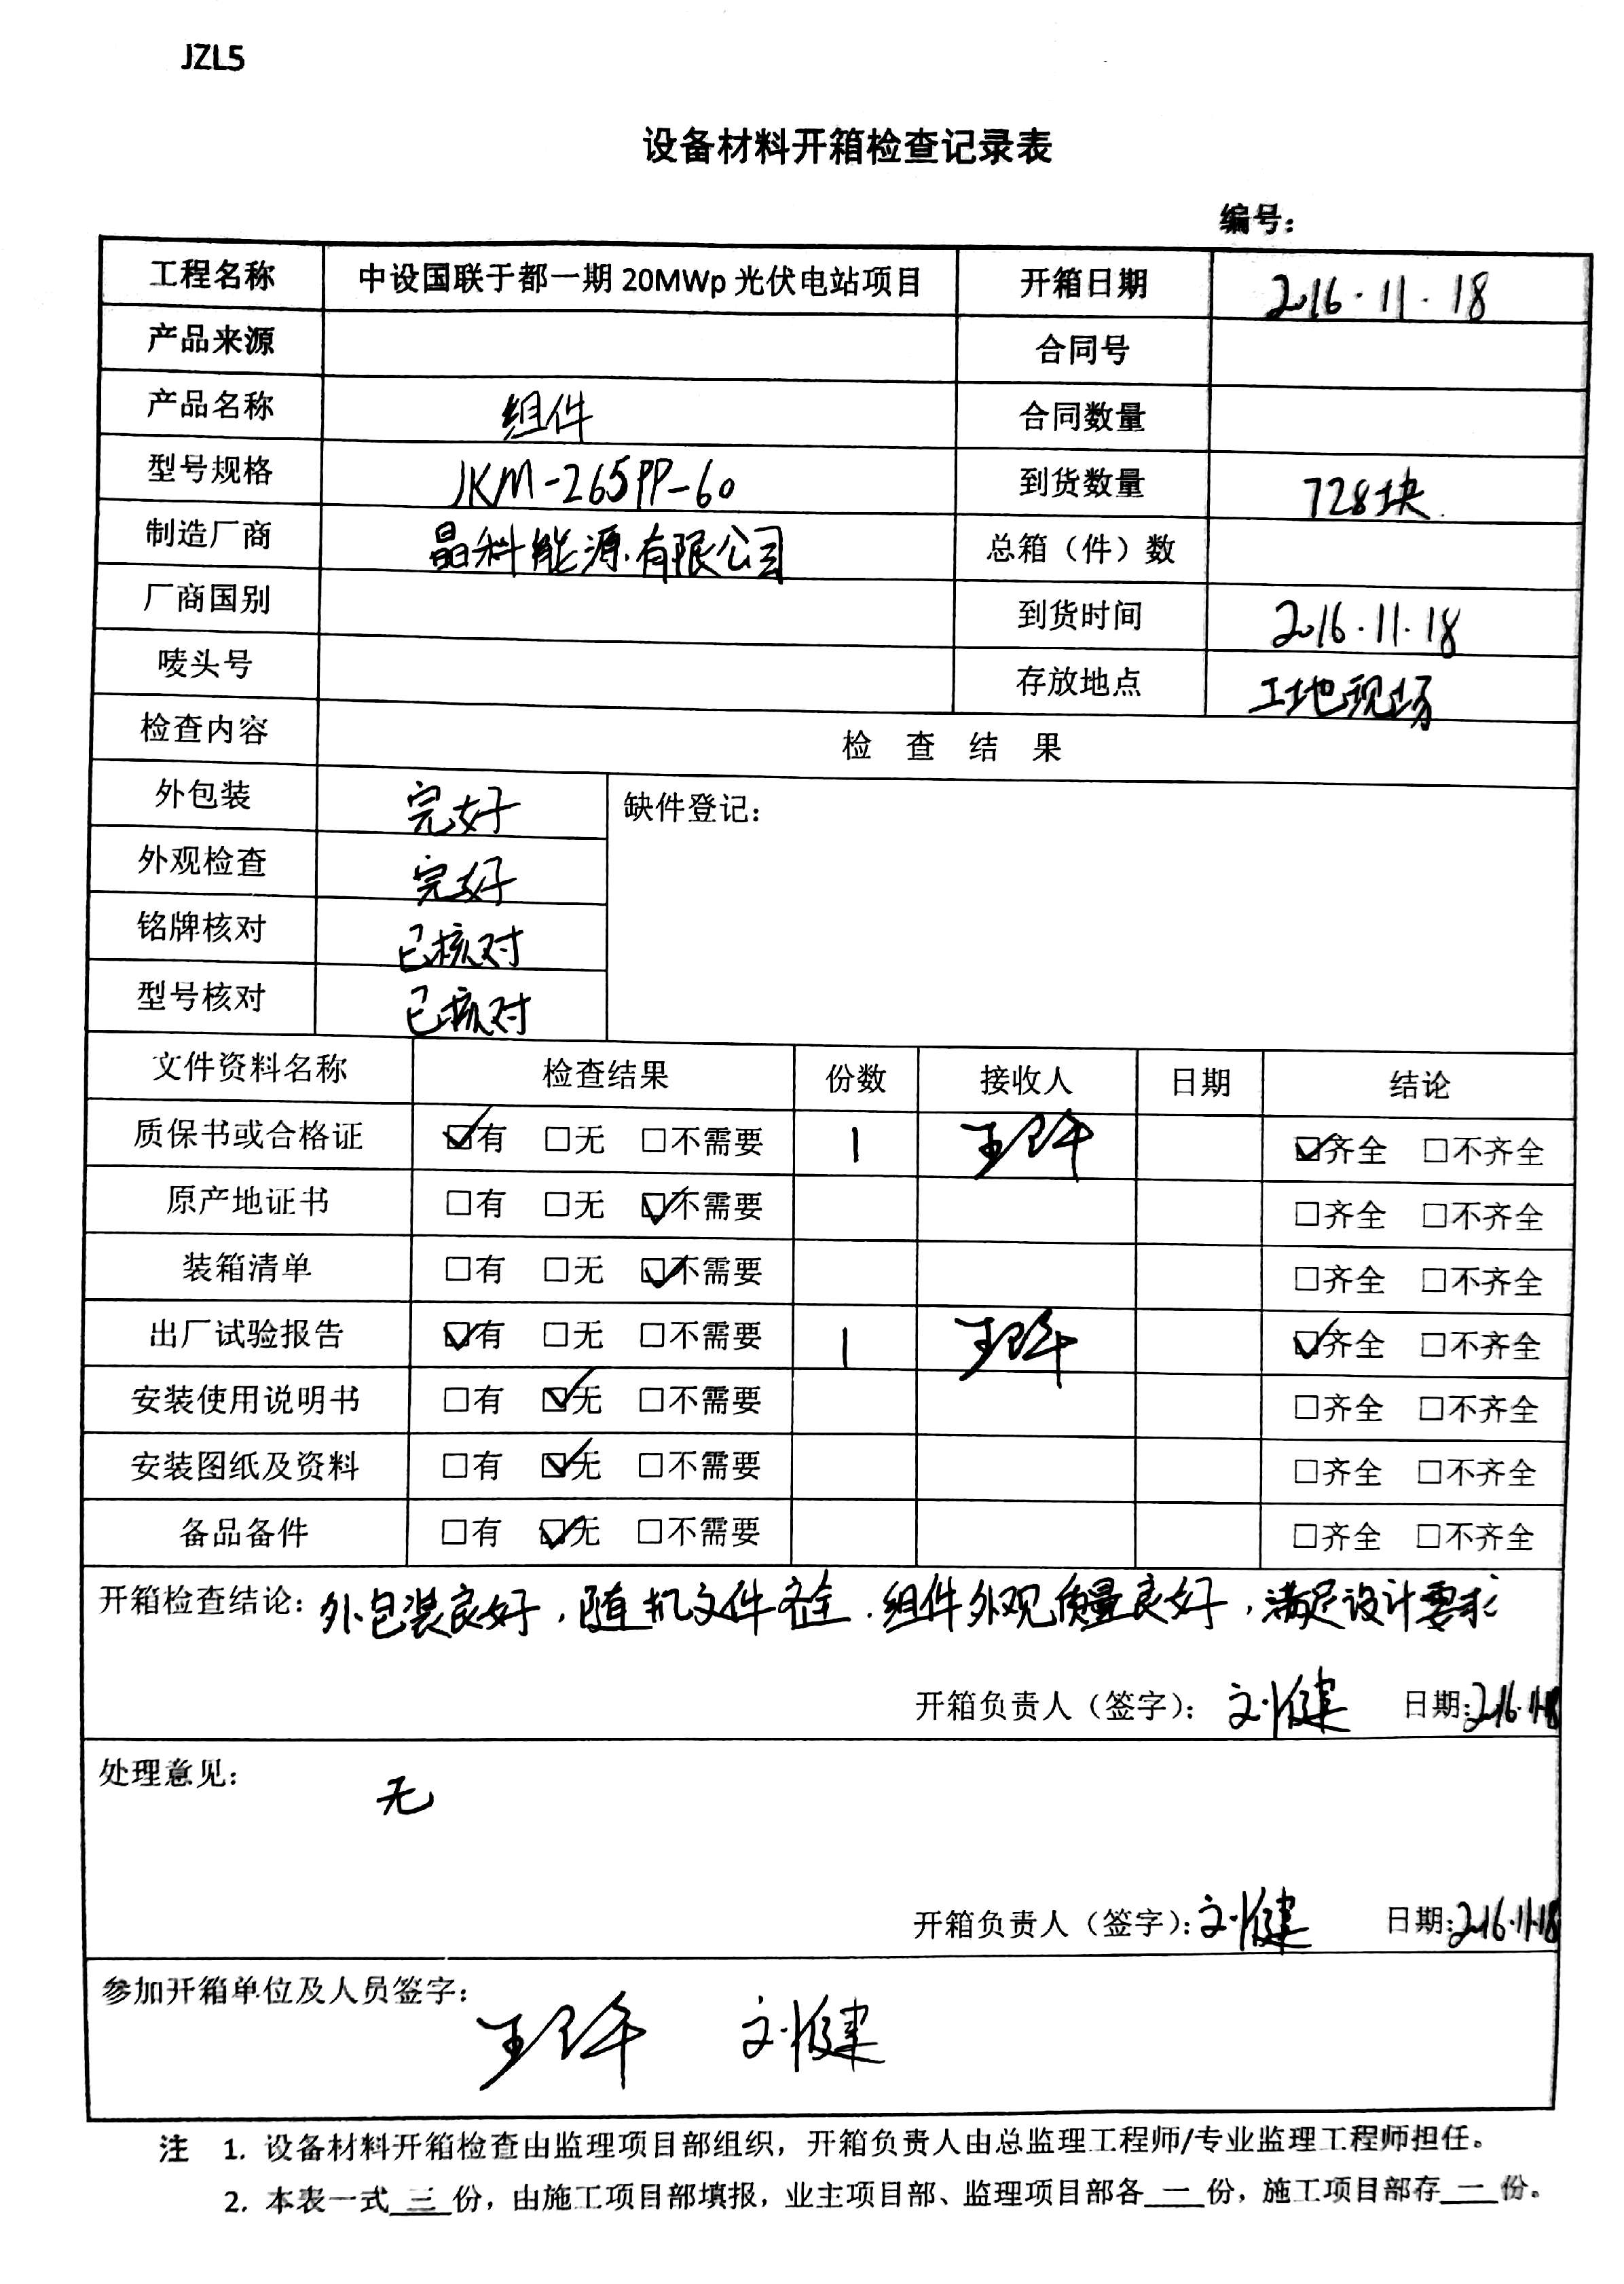 JZL5
设备材料开箱检查记录表
编号：
工程名称 中设国联于都一期 20MWp 光伏电站项目 开箱日期 2016.11.18
产品来源 合同号
产品名称 组件 合同数量
型号规格 JKM-265PP-60 到货数量 728块
制造厂商 晶科能源有限公司 总箱（件）数
厂商国别 到货时间 2016.11.18
唛头号 存放地点 工地现场
检查内容 检 查 结 果
外包装 完好 缺件登记：
外观检查 完好
铭牌核对 已核对
型号核对 已核对
文件资料名称 检查结果 份数 接收人 日期 结论
质保书或合格证 ☑有 □无 □不需要 1 ☑齐全 □不齐全
原产地证书 □有 □无 ☑不需要 □齐全 □不齐全
装箱清单 □有 □无 ☑不需要 □齐全 □不齐全
出厂试验报告 ☑有 □无 □不需要 1 ☑齐全 □不齐全
安装使用说明书 □有 ☑无 □不需要 □齐全 □不齐全
安装图纸及资料 □有 ☑无 □不需要 □齐全 □不齐全
备品备件 □有 ☑无 □不需要 □齐全 □不齐全
开箱检查结论：外包装良好，随机文件齐全，组件外观质量良好，满足设计要求
开箱负责人（签字）：刘健 日期：2016.11.18
处理意见：
无
开箱负责人（签字）：刘健 日期：2016.11.18
参加开箱单位及人员签字：
刘健
注 1. 设备材料开箱检查由监理项目部组织，开箱负责人由总监理工程师/专业监理工程师担任。
2. 本表一式 三 份，由施工项目部填报，业主项目部、监理项目部各 一 份，施工项目部存 一 份。